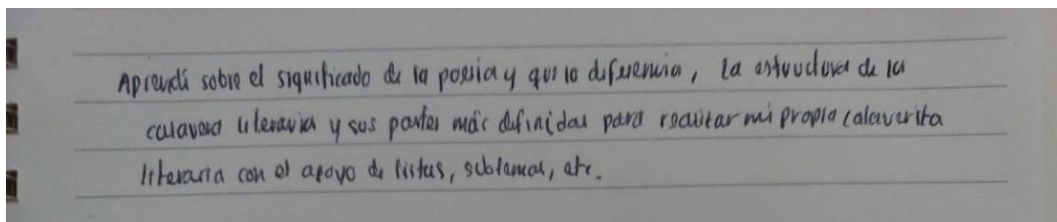 Aprendí sobre el significado de la poesía y que lo diferencia, la estructura de la
calavera literaria y sus partes más definidas para realizar mi propia calaverita
literaria con el apoyo de listas, sublemas, etc.